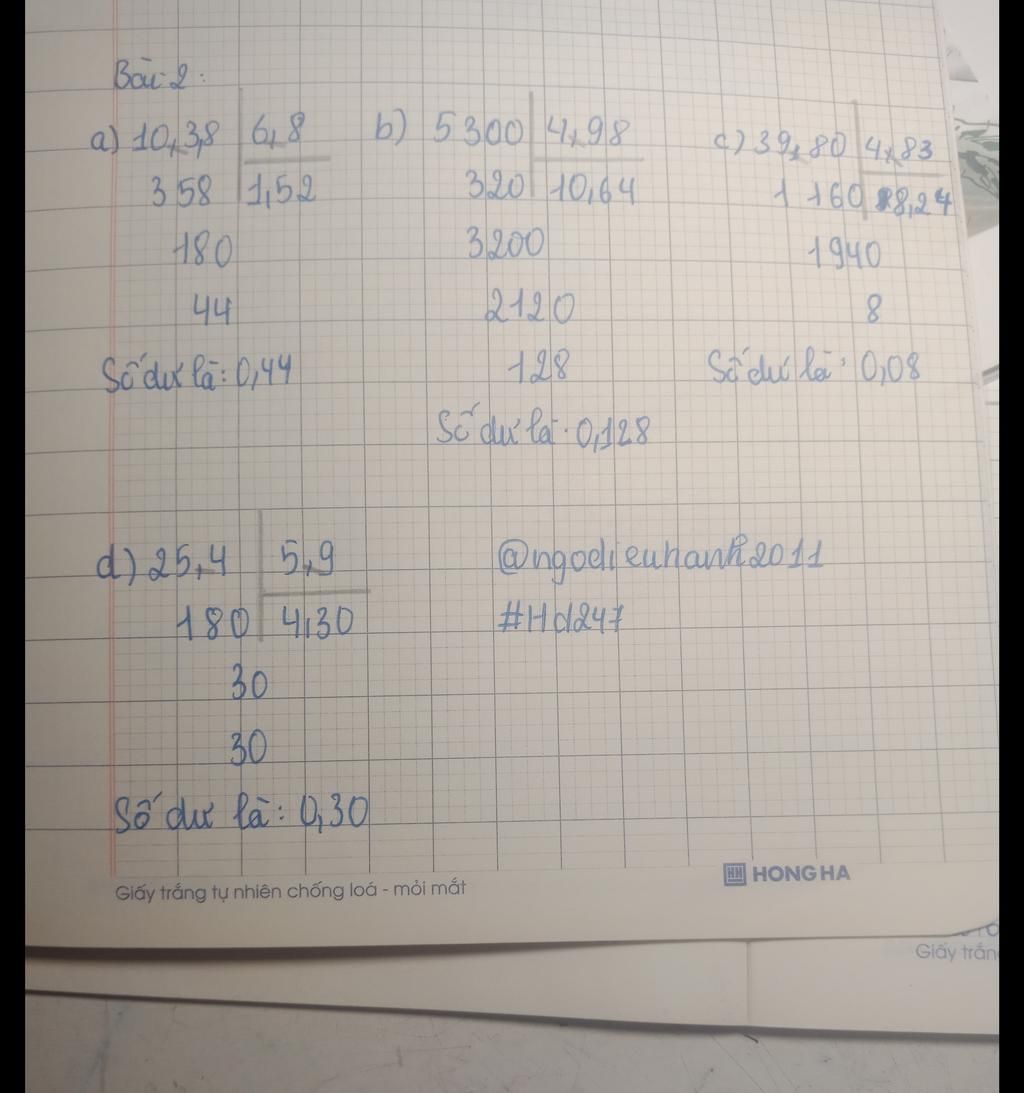 Bài 2:
a) 10,3,8 6,8
358 1,52
180
44
Số dư là: 0,44
b) 5300 4,98
320 10,64
3200
2120
128
Số dư là: 0,128
c) 39,80 4,83
1 160 8,24
1940
8
Số dư là: 0,08
d) 25,4 5,9
180 4,30
30
30
Số dư là: 0,30
#Hd247
HH HONG HA
Giấy trắng tự nhiên chống loá - mỏi mắt
Giấy trắn